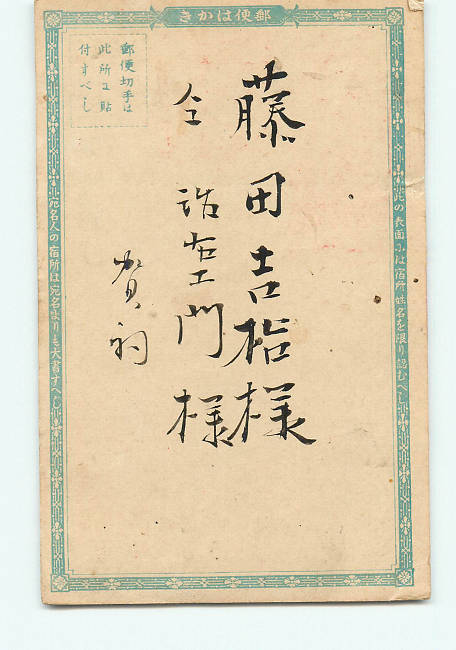 郵便はかき
郵便切手は
此所に貼
付すべし
此の表面には宿所姓名を限り認むべし
藤田吉様
仝 右エ門様
賀詞
宛名人の宿所は宛名よりも大書すべし